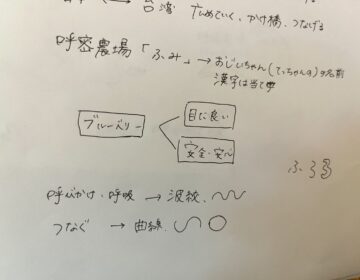 台湾 広めていく、かけ橋、つなげる
呼密農場「ふみ」→ おじいちゃん(てっちゃんの)の名前
漢字は当て字
ブルーベリー
目に良い
安全・安心
ふみ
呼びかけ・呼吸 → 波紋、
つなぐ → 曲線